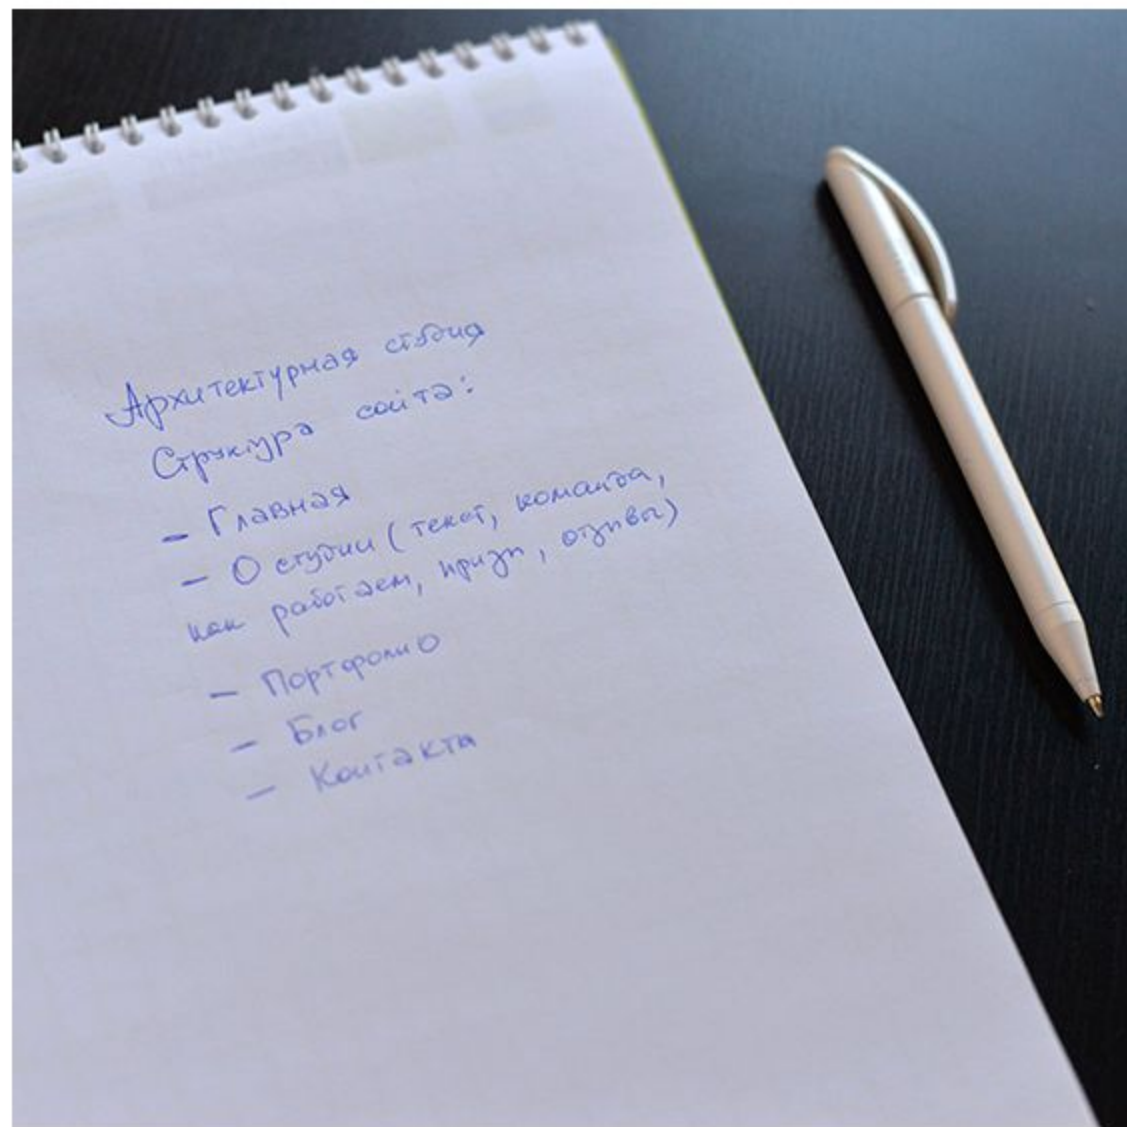 Архитектурная студия
Структура сайта:
- Главная
- О студии (текст, команда,
как работаем, призы, отзывы)
- Портфолио
- Блог
- Контакты